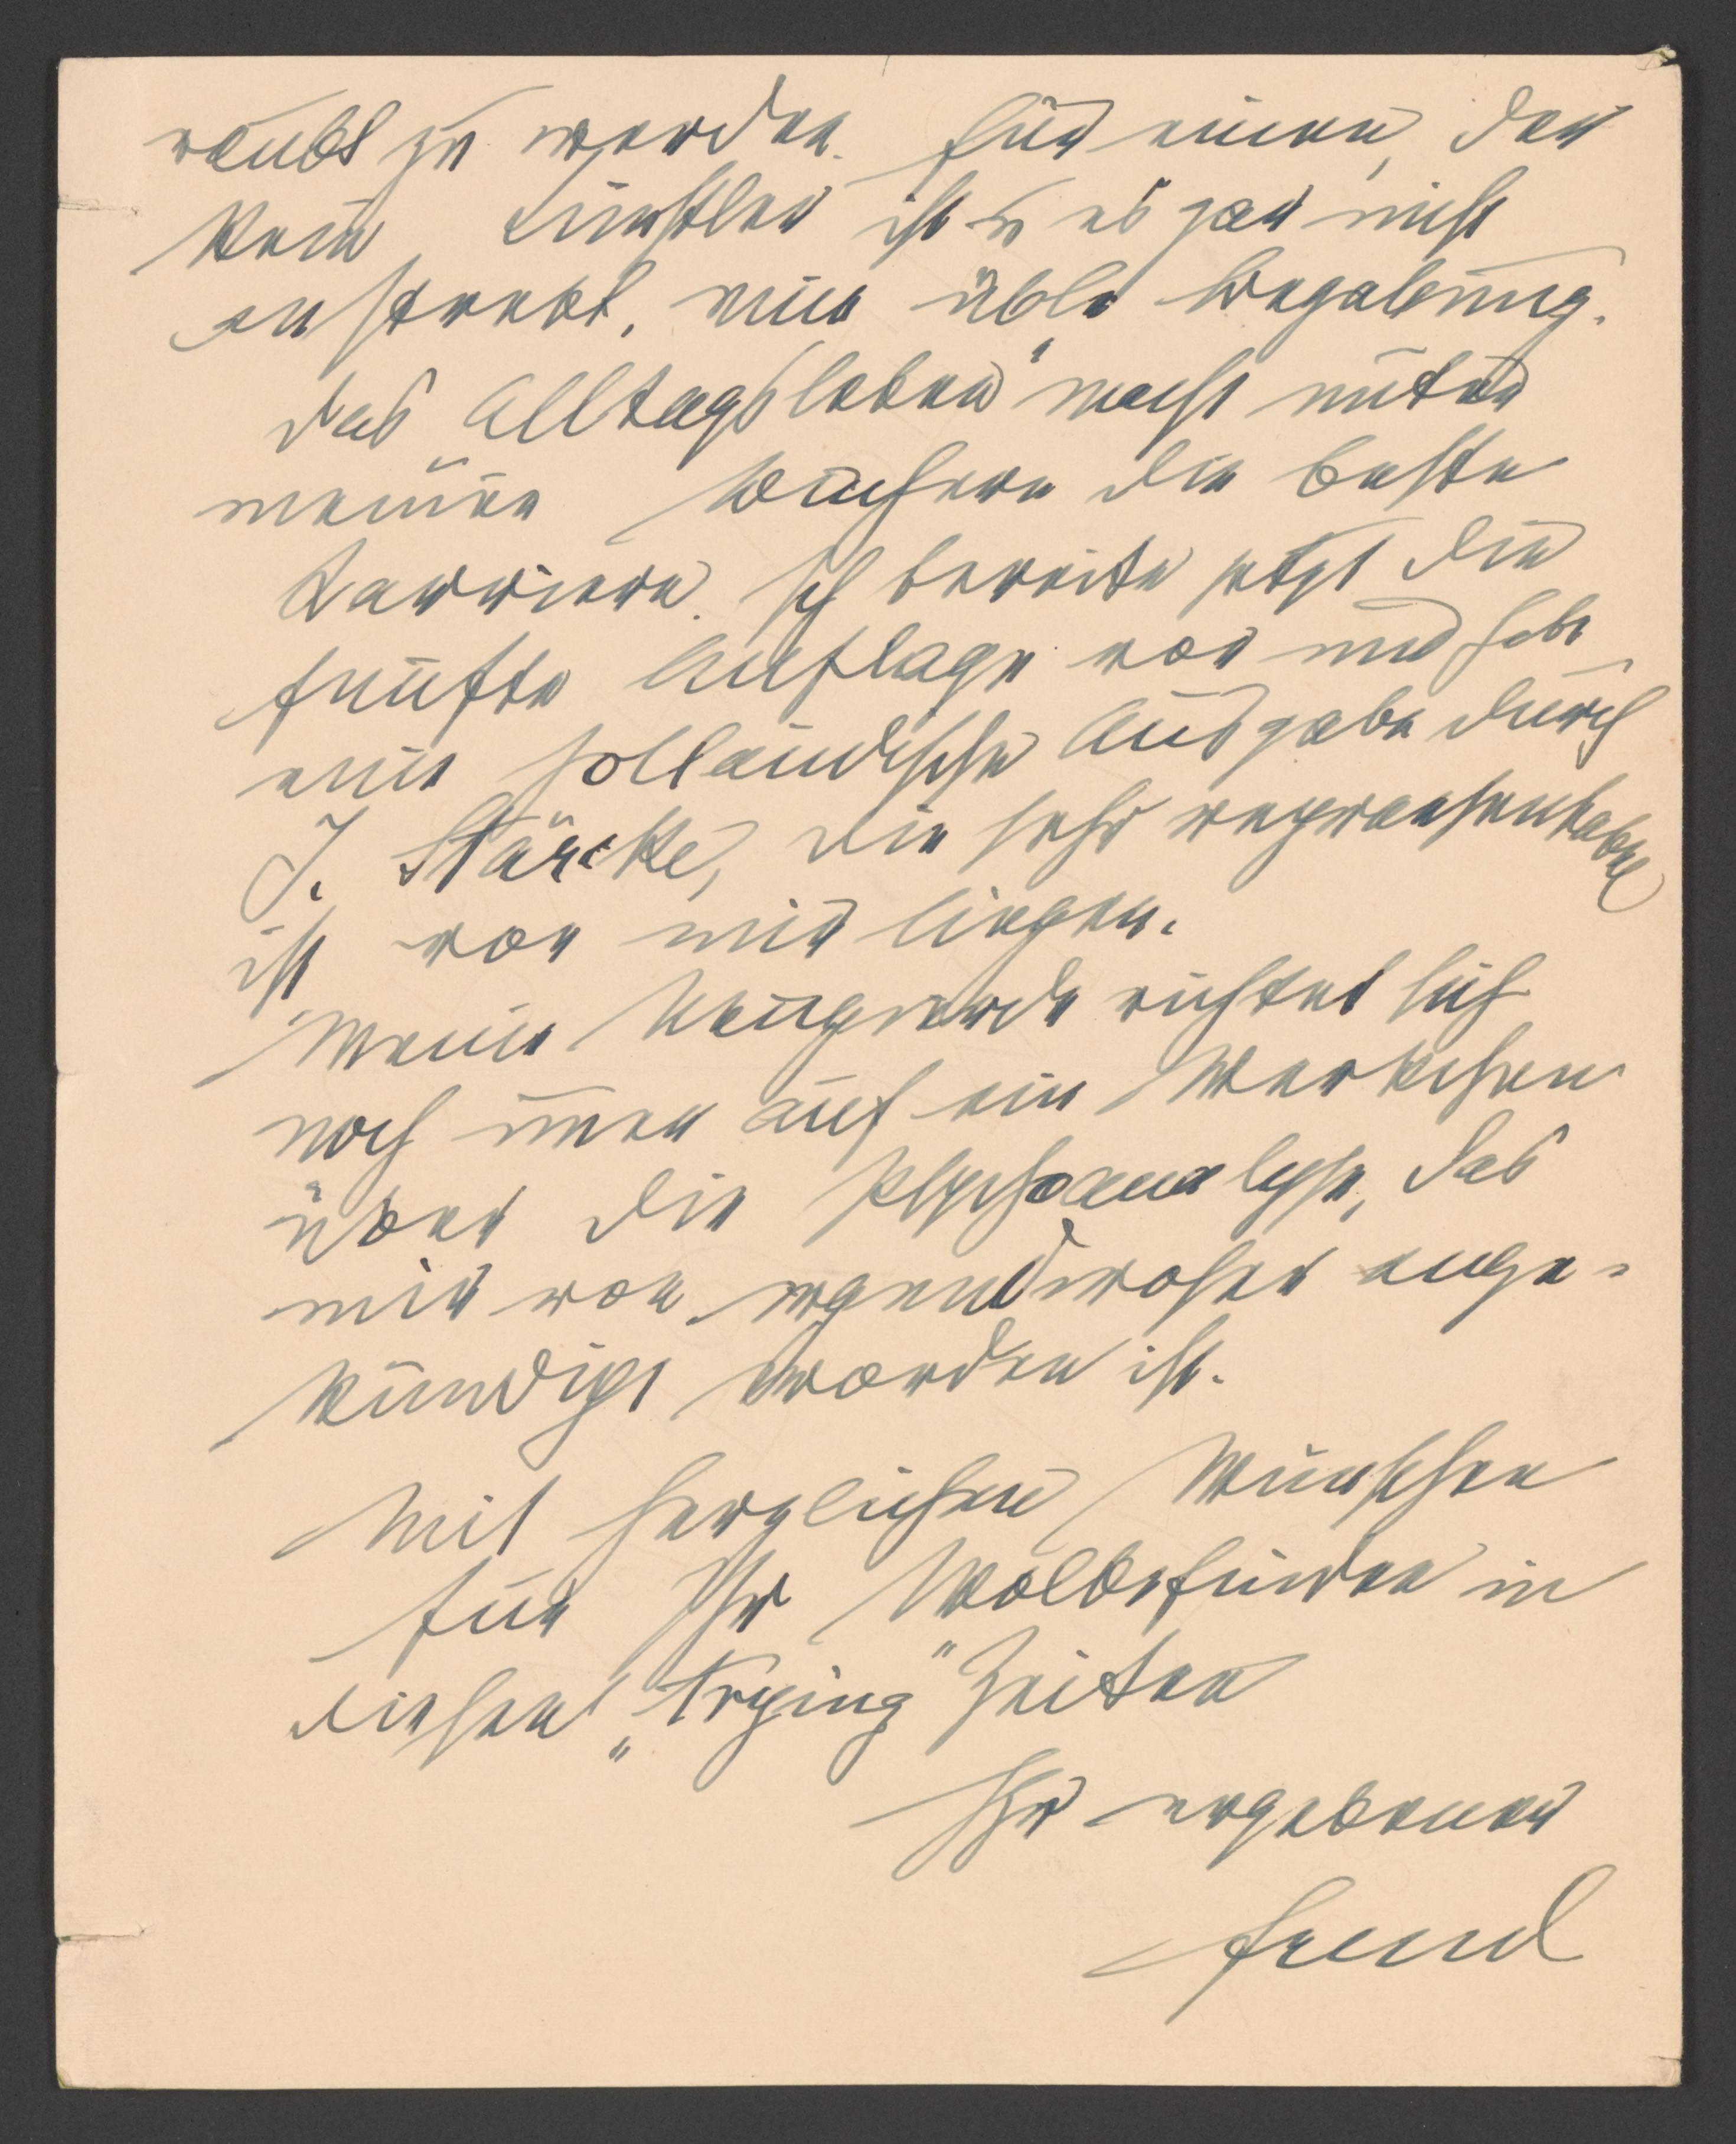 raubt zu werden. Für einen, der
kein Künstler ist u es gar nicht
anstrebt, eine üble Begabung.
Das „Alltagsleben“ macht unter
meinen Büchern die beste
Karriere. Ich bereite jetzt die
fünfte Auflage vor und habe
eine holländische Ausgabe durch
J. Stärcke, die sehr repraesentabel
ist vor mir liegen.
Meine Neugierde richtet sich
noch immer auf ein Werkchen
über die Psychoanalyse, das
mir von irgendwoher ange-
kündigt worden ist.
Mit herzlichen Wünschen
für Ihr Wolbefinden in
diesen „trying“ Zeiten
Ihr ergebener
Freud